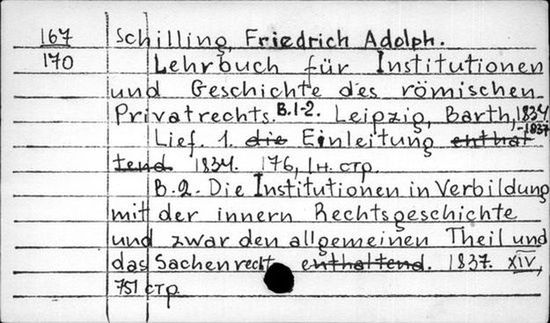 167 Schilling, Friedrich Adolph.
170 Lehrbuch für Institutionen
und Geschichte des römischen
Privatrechts. B.1-2. Leipzig, Barth, 1834
-1837
Lief. 1. die Einleitung enthal
tend. 1834. 176, 1н. стр.
B.2. Die Institutionen in Verbildung
mit der innern Rechtsgeschichte
und zwar den allgemeinen Theil und
das Sachenrecht enthaltend. 1837. XIV,
751 стр.